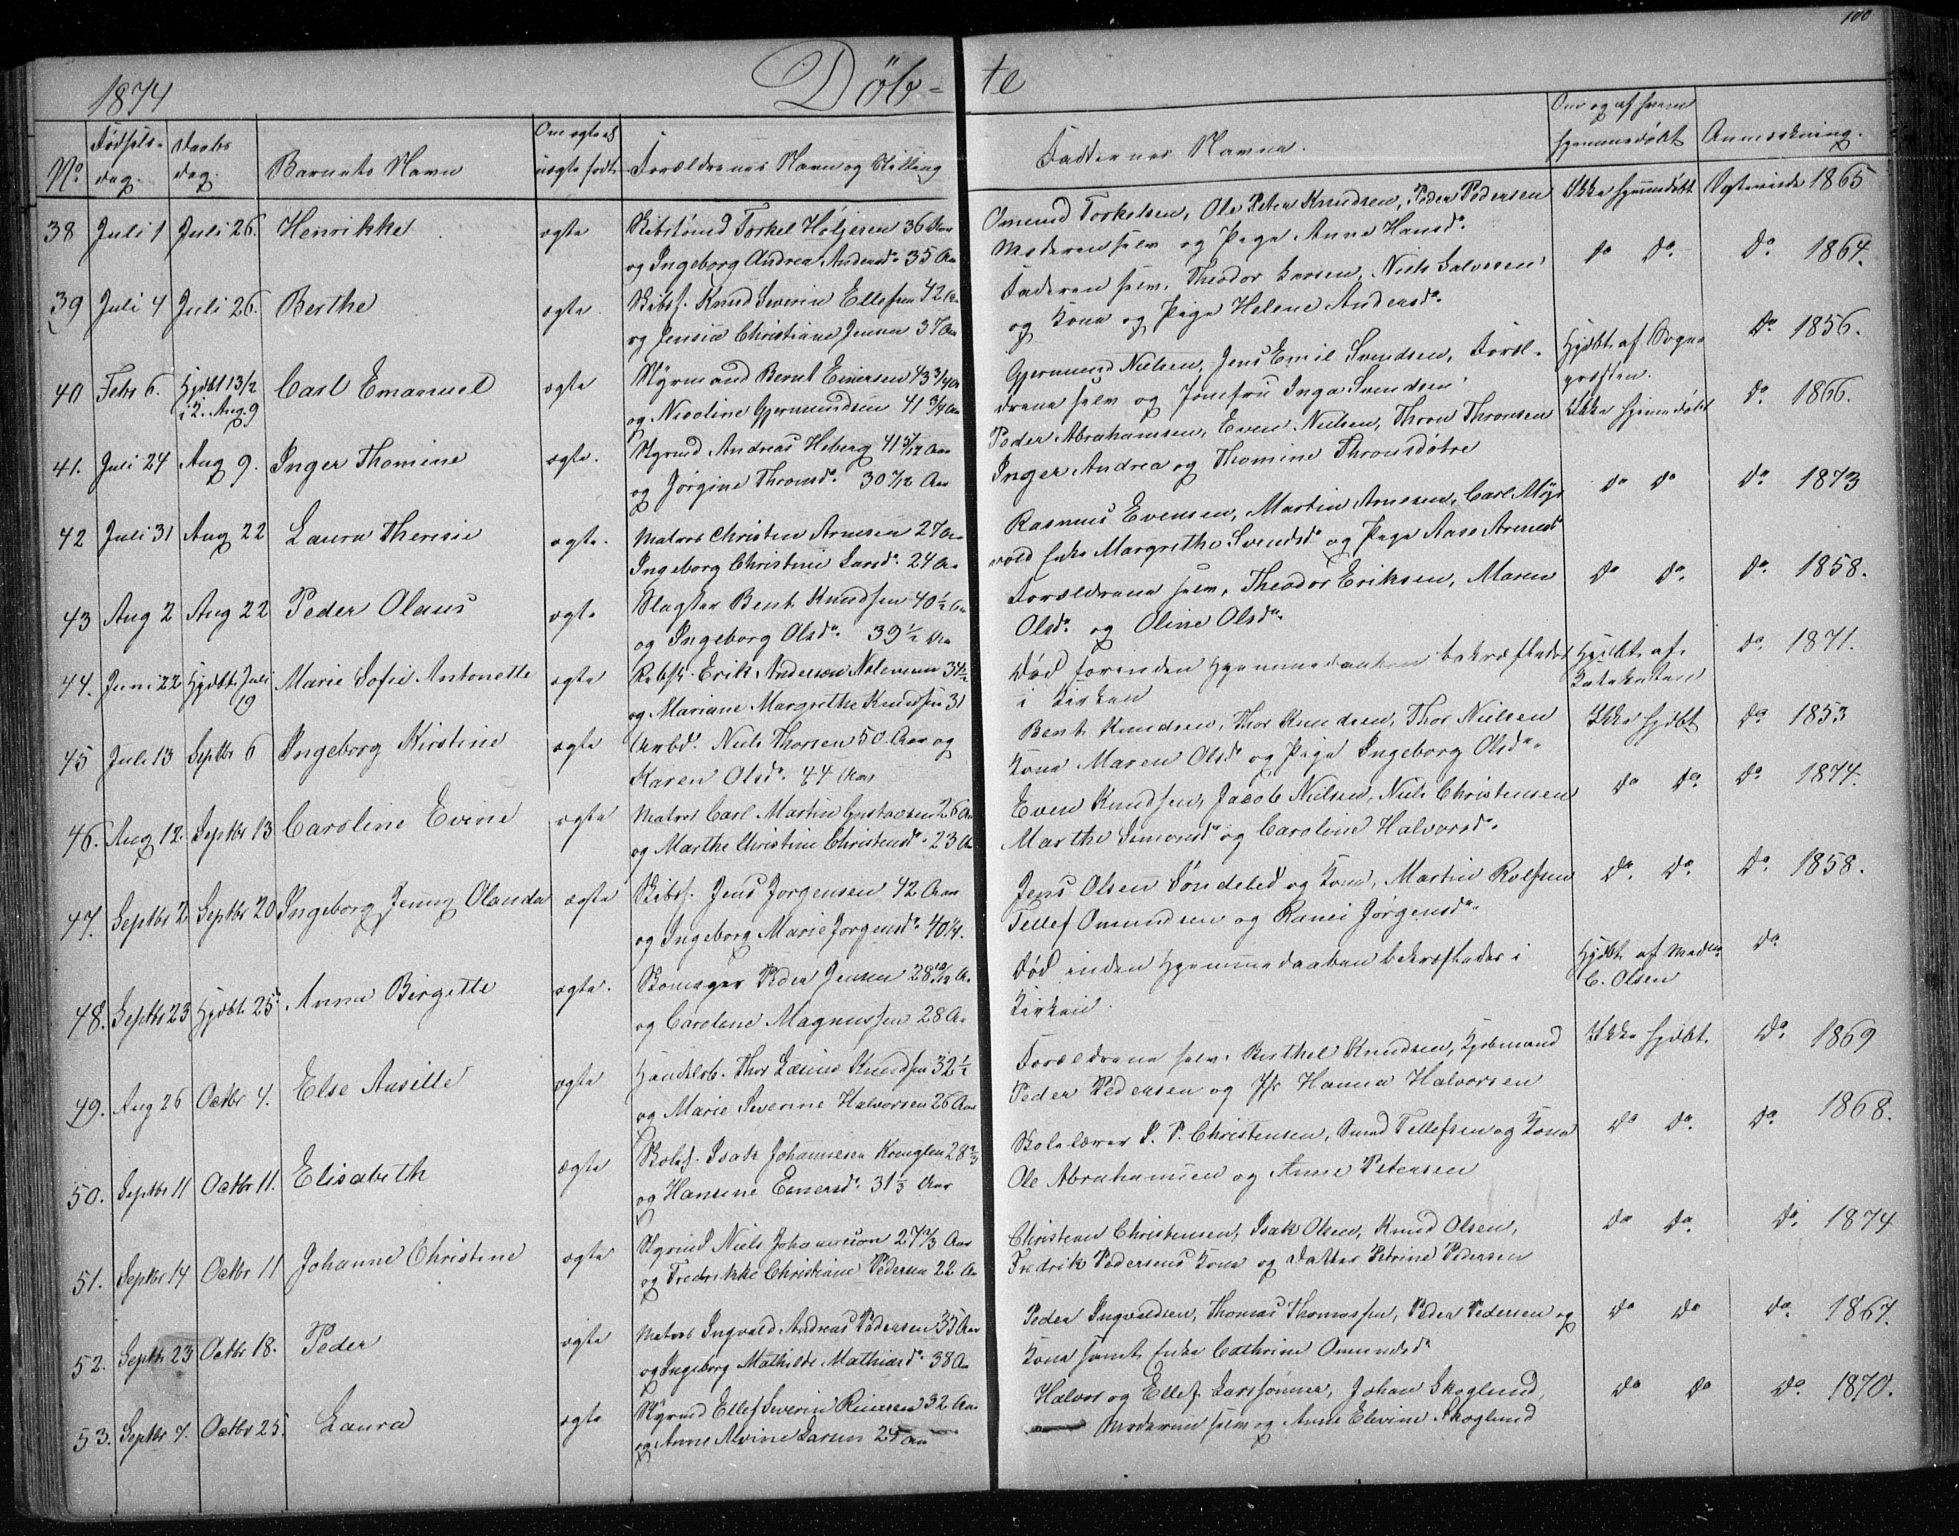 100
1874 Døb- te
No Fødsels- dag. Daabs dag. Barnets Navn Om ægte el uægte født Forældrenes Navn og Stilling Faddernes Navne. Om og af hvem hjemmedøbt Anmærkning.
38 Juli 1 Juli 26. Henrikke ægte Torkel Høljesen 36 Aar Omund Torkelsen, Ole Peter Knudsen, Peder Pedersen Ikke hjemmedøbt 1865
og Ingeborg Andrea Andersd. 35 Aar Moderen selv og Pige Anne Hansd.
39 Juli 4 Juli 26. Berthe ægte Skibsf. Knud Severin Ellefsen 42 Aar Faderen selv, Theodor Larsen, Niels Halvorsen do do. Do 1864.
og Jensine Christiane Jensen 37 Aar og Kone og Pige Helene Andersd.
40 Febr 6. Hjdbt 13/2 i K. Aug 9 Carl Emanuel ægte Styrmand Bernt Einersen 43 3/4 Aar Gjermund Nielsen, Jens Emil Svendsen, Foræl- Hjdbt. af Sogne- Do 1856.
og Nicoline Gjermundsen 41 3/4 Aar drene selv og Jomfru Inga Svendsen præsten.
41. Juli 24 Aug 9. Inger Thomine ægte. Styrmd Andreas Heberg 41 5/12 Aar Peder Abrahamsen, Even Nielsen, Thron Thronsen Ikke hjemmedøbt Do. 1866.
og Jørgine Thronsd. 30 7/12 Aar Inger Andrea og Thomine Thronsdøtre
42 Juli 31 Aug 22 Laura Theresie ægte. Matros Christen Arnesen 27 Aar Rasmus Evensen, Martin Arnesen, Carl do do Do. 1873
Ingeborg Christine Larsd. 24 Aar Enke Margrethe Svendsd. og Pige Aase Arnesd
43 Aug 2 Aug 22 Peder Olaus ægte Slagter Bent Knudsen 40 1/2 Aar Forældrene selv, Theodor Eriksen, Maren do do. Do. 1858.
og Ingeborg Olsd. 39 1/2 Aar Olsd. og Oline Olsd.
44. Juni 22 Hjdbt. Juli 19 Marie Sofie Antonette ægte Erik Andersen 34 1/2 Død forinden Hjemmedaaben bekræftedes Hjdbt. af. Do. 1871.
og Mariane Margrethe Knudsen 31 i Kirken Kateketen
45 Juli 13 Septbr 6 Ingeborg Kirstine ægte Arbd. Niels Thorsen 50 Aar og Bent Knudsen, Thor Knudsen, Thor Nielsen Ikke hjdbt Do 1853
Karen Olsd. 44 Aar Kone Maren Olsd og Pige Ingeborg Olsd.
46. Aug 12. Septbr 13 Caroline Evine ægte Matros Carl Martin Gustavsen 26 Aar Even Knudsen, Jacob Nielsen, Niels Christensen do do Do 1874.
og Marthe Christine Christensd. 23 Aar Marthe Simonsd og Caroline Halvorsd.
47. Septbr 2. Septbr 20. Ingeborg Jenny Olanda ægte Skibsf. Jens Jørgensen 42 Aar Jens Olsen Søndeled og Kone, Martin Rolfsen do. do. Do. 1858.
og Ingeborg Marie Jørgensd. 40 1/4. Tellef Omundsen og Jørgensd.
48. Septbr 23 Hjdbt. 25 Anna Birgette ægte. Skomager Peder Jensen 28 10/12 Aar Død inden Hjemmedaaben bekræftedes i Hjdbt af Do
og Caroline Magnussen 28 Aar Kirken. C. Olsen
49. Aug 26 Octbr 4. Else Ansille ægte Handelsb. Thor Knudsen 32 1/2 Forældrene selv. Berthel Knudsen, Kjøbmand Ikke hjdbt. Do. 1869
og Marie Severine Halvorsen 26 Aar Peder Pedersen og Jfr Hanna Halvorsen
50. Septbr 11 Octbr 11. Elisabeth ægte Isak Johannesen 28 2/3 Skolelærer P. Christensen, Tellefsen og Kone do do. Do. 1868.
og Hansine Einersd. 31 1/3 Aar Ole Abrahamsen og Anne Petersen
51. Septbr 14 Octbr 11 Johanne Christine ægte Styrmd Niels Johannesen 27 Aar Christian Christensen, Isak Olsen, Knud Olsen, do do. Do. 1874
og Fredrikke Christiane Pedersen 22 Aar Fredrik Pedersens Kone og Datter Petrine Pedersen
52. Septbr 23 Octbr 18. Peder ægte Matros Ingvald Andreas Pedersen 35 Aar Peder Ingvaldsen, Thomas Thomassen, Peder Pedersen og do do Do. 1867.
og Ingeborg Mathilde Mathiasd. 38 Aar Kone samt Enke Cathrine Omundsd.
53. Septbr 7. Octbr 25. Laura ægte Styrmd Ellef Severin Reiersen 32 Aar Halvor og Ellef Larssønner, Johan Skoglund, do do Do. 1870.
og Anne Alvine Larsen 25 Aar Moderen selv og Anne Elevine Skoglund